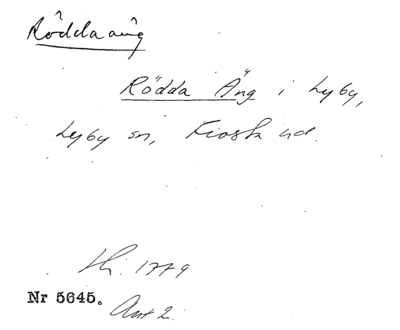 Röddaäng
Rödda Äng i Lyby,
Lyby sn, Frosta hd.
Lh. 1779
Nr 5645.
Akt 2.